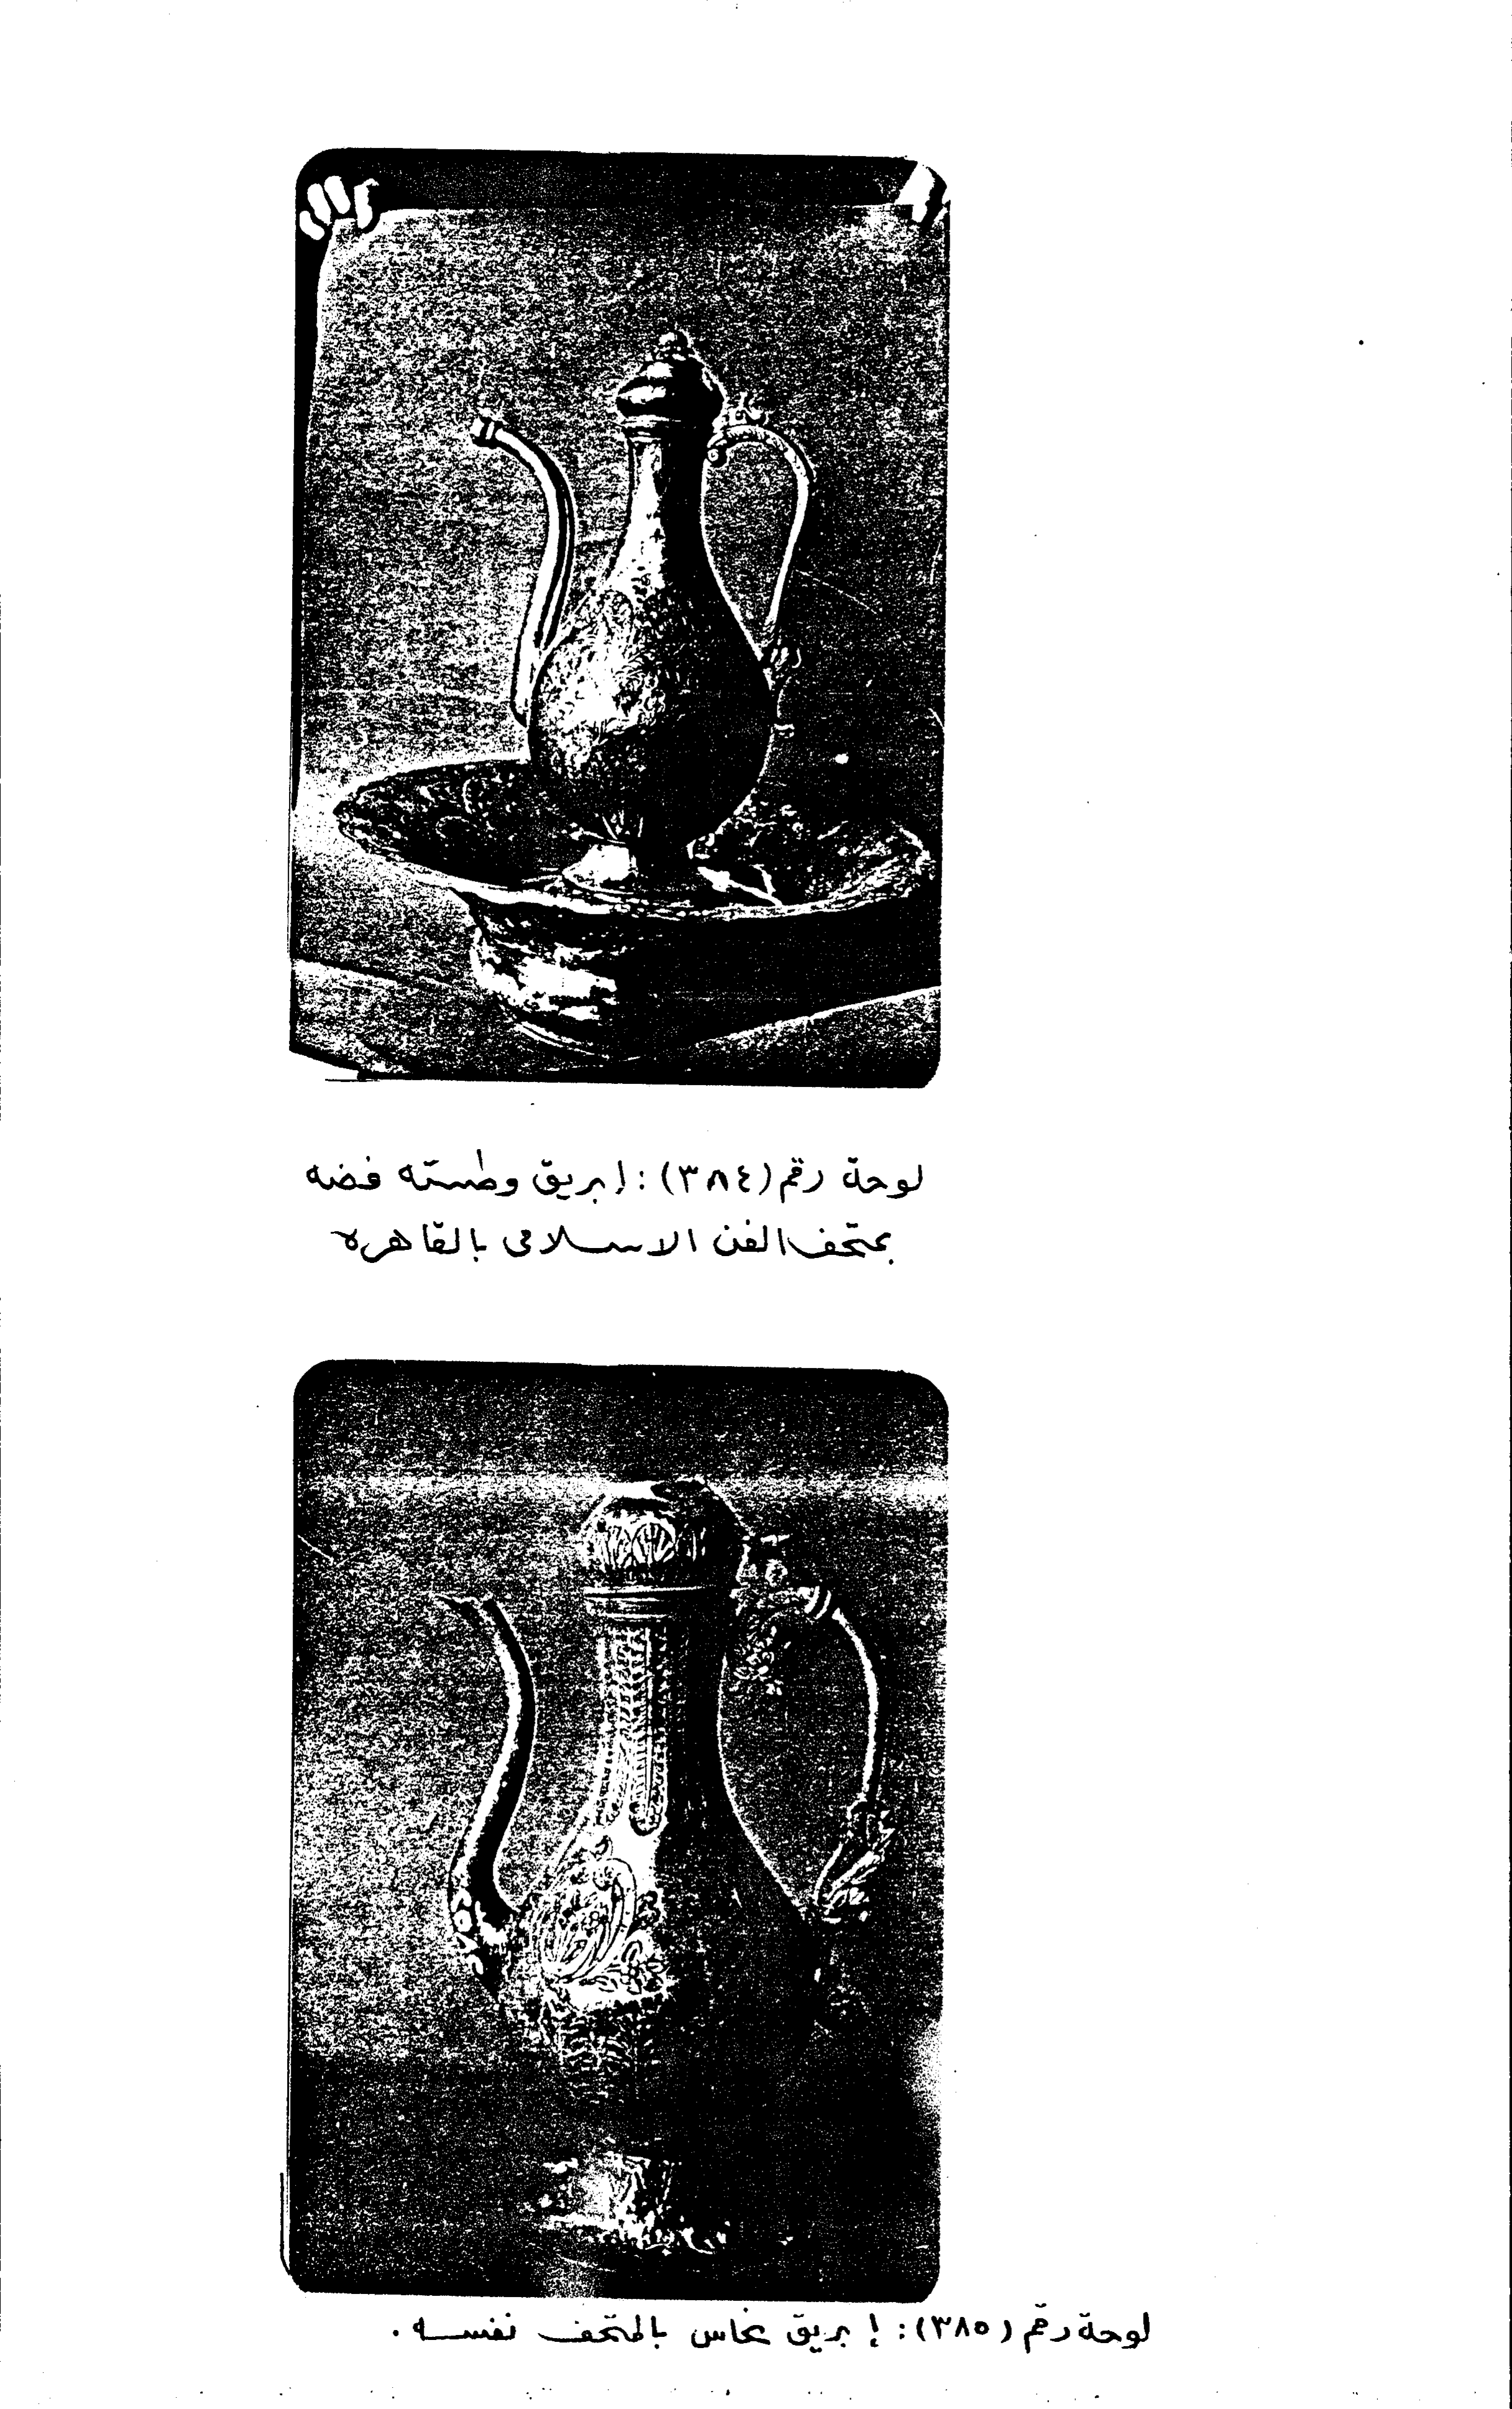 لوحة رقم (٣٨٤) : إبريق وطسته فضه
بمتحف الفن الاسلامى بالقاهره
لوحة رقم (٣٨٥) : إبريق نحاس بالمتحف نفسه .